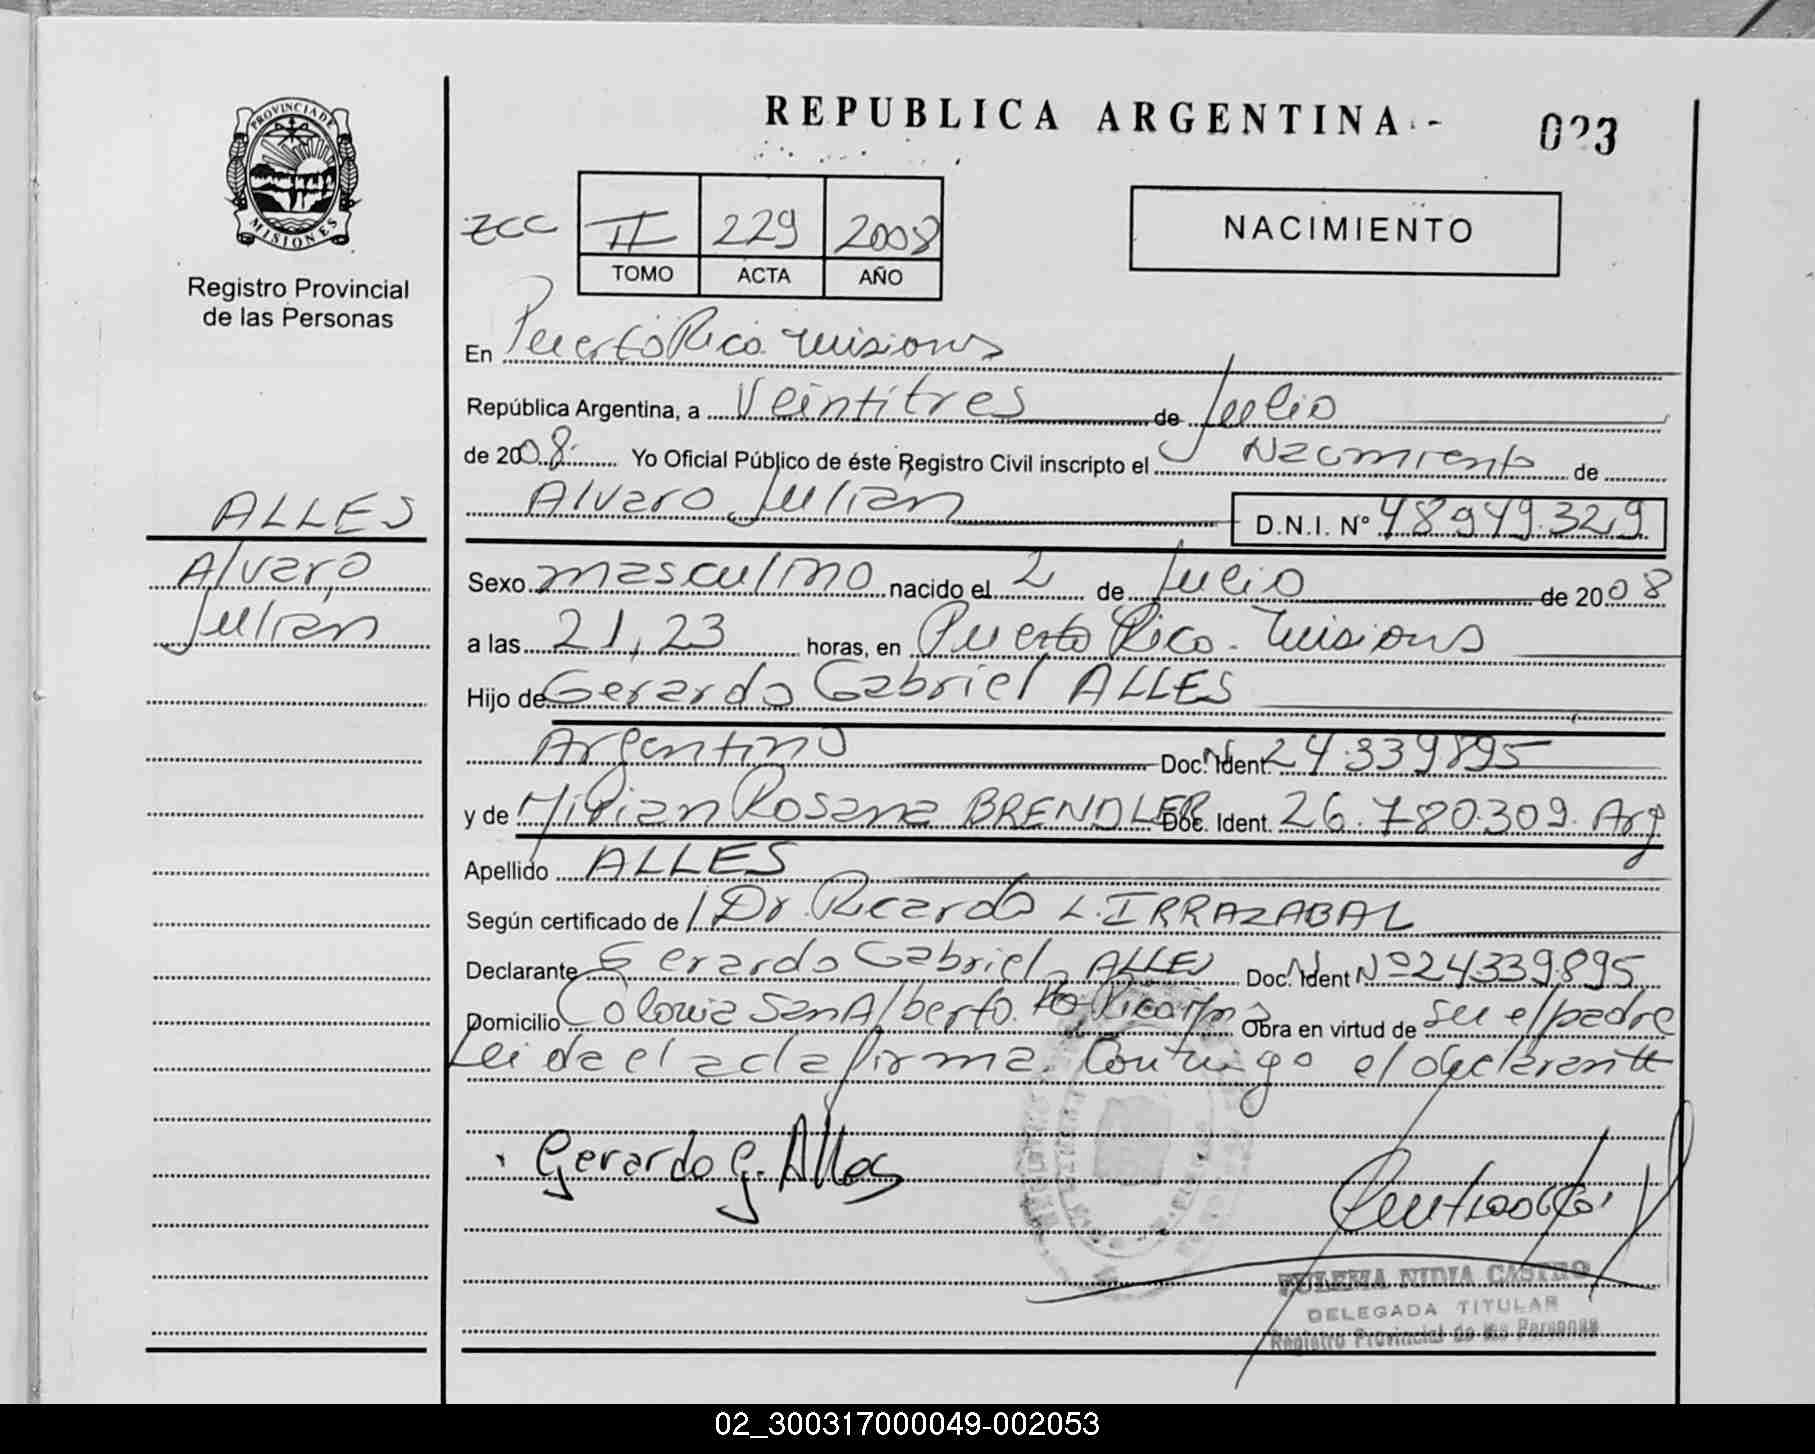 REPUBLICA ARGENTINA.-
023
PROVINCIA DE
MISIONES
Registro Provincial
de las Personas
II 229 2008
TOMO ACTA AÑO
NACIMIENTO
En Puerto Rico Misiones
República Argentina, a Veintitres de Julio
de 2008. Yo Oficial Público de éste Registro Civil inscripto el Nacimiento de
Alvaro Julián D.N.I. Nº 48949.329
ALLES
Alvaro
Julián
Sexo masculino nacido el 2 de Julio de 2008
a las 21,23 horas, en Puerto Rico - Misiones
Hijo de Gerardo Gabriel ALLES
Argentino Doc. Ident. 24.339895
y de Miriam Rosana BRENDLER Doc. Ident. 26.780.309. Arg
Apellido ALLES
Según certificado de Dr. Ricardo L. IRRAZABAL
Declarante Gerardo Gabriel ALLES Doc. Ident Nº 24.339.895
Domicilio Colonia San Alberto. Pto Rico Mnes Obra en virtud de ser el padre
Leida el acta firma conmigo el declarante
Gerardo G. Alles
ZULEMA NIDIA CASTRO
DELEGADA TITULAR
Registro Provincial de las Personas
02_300317000049-002053